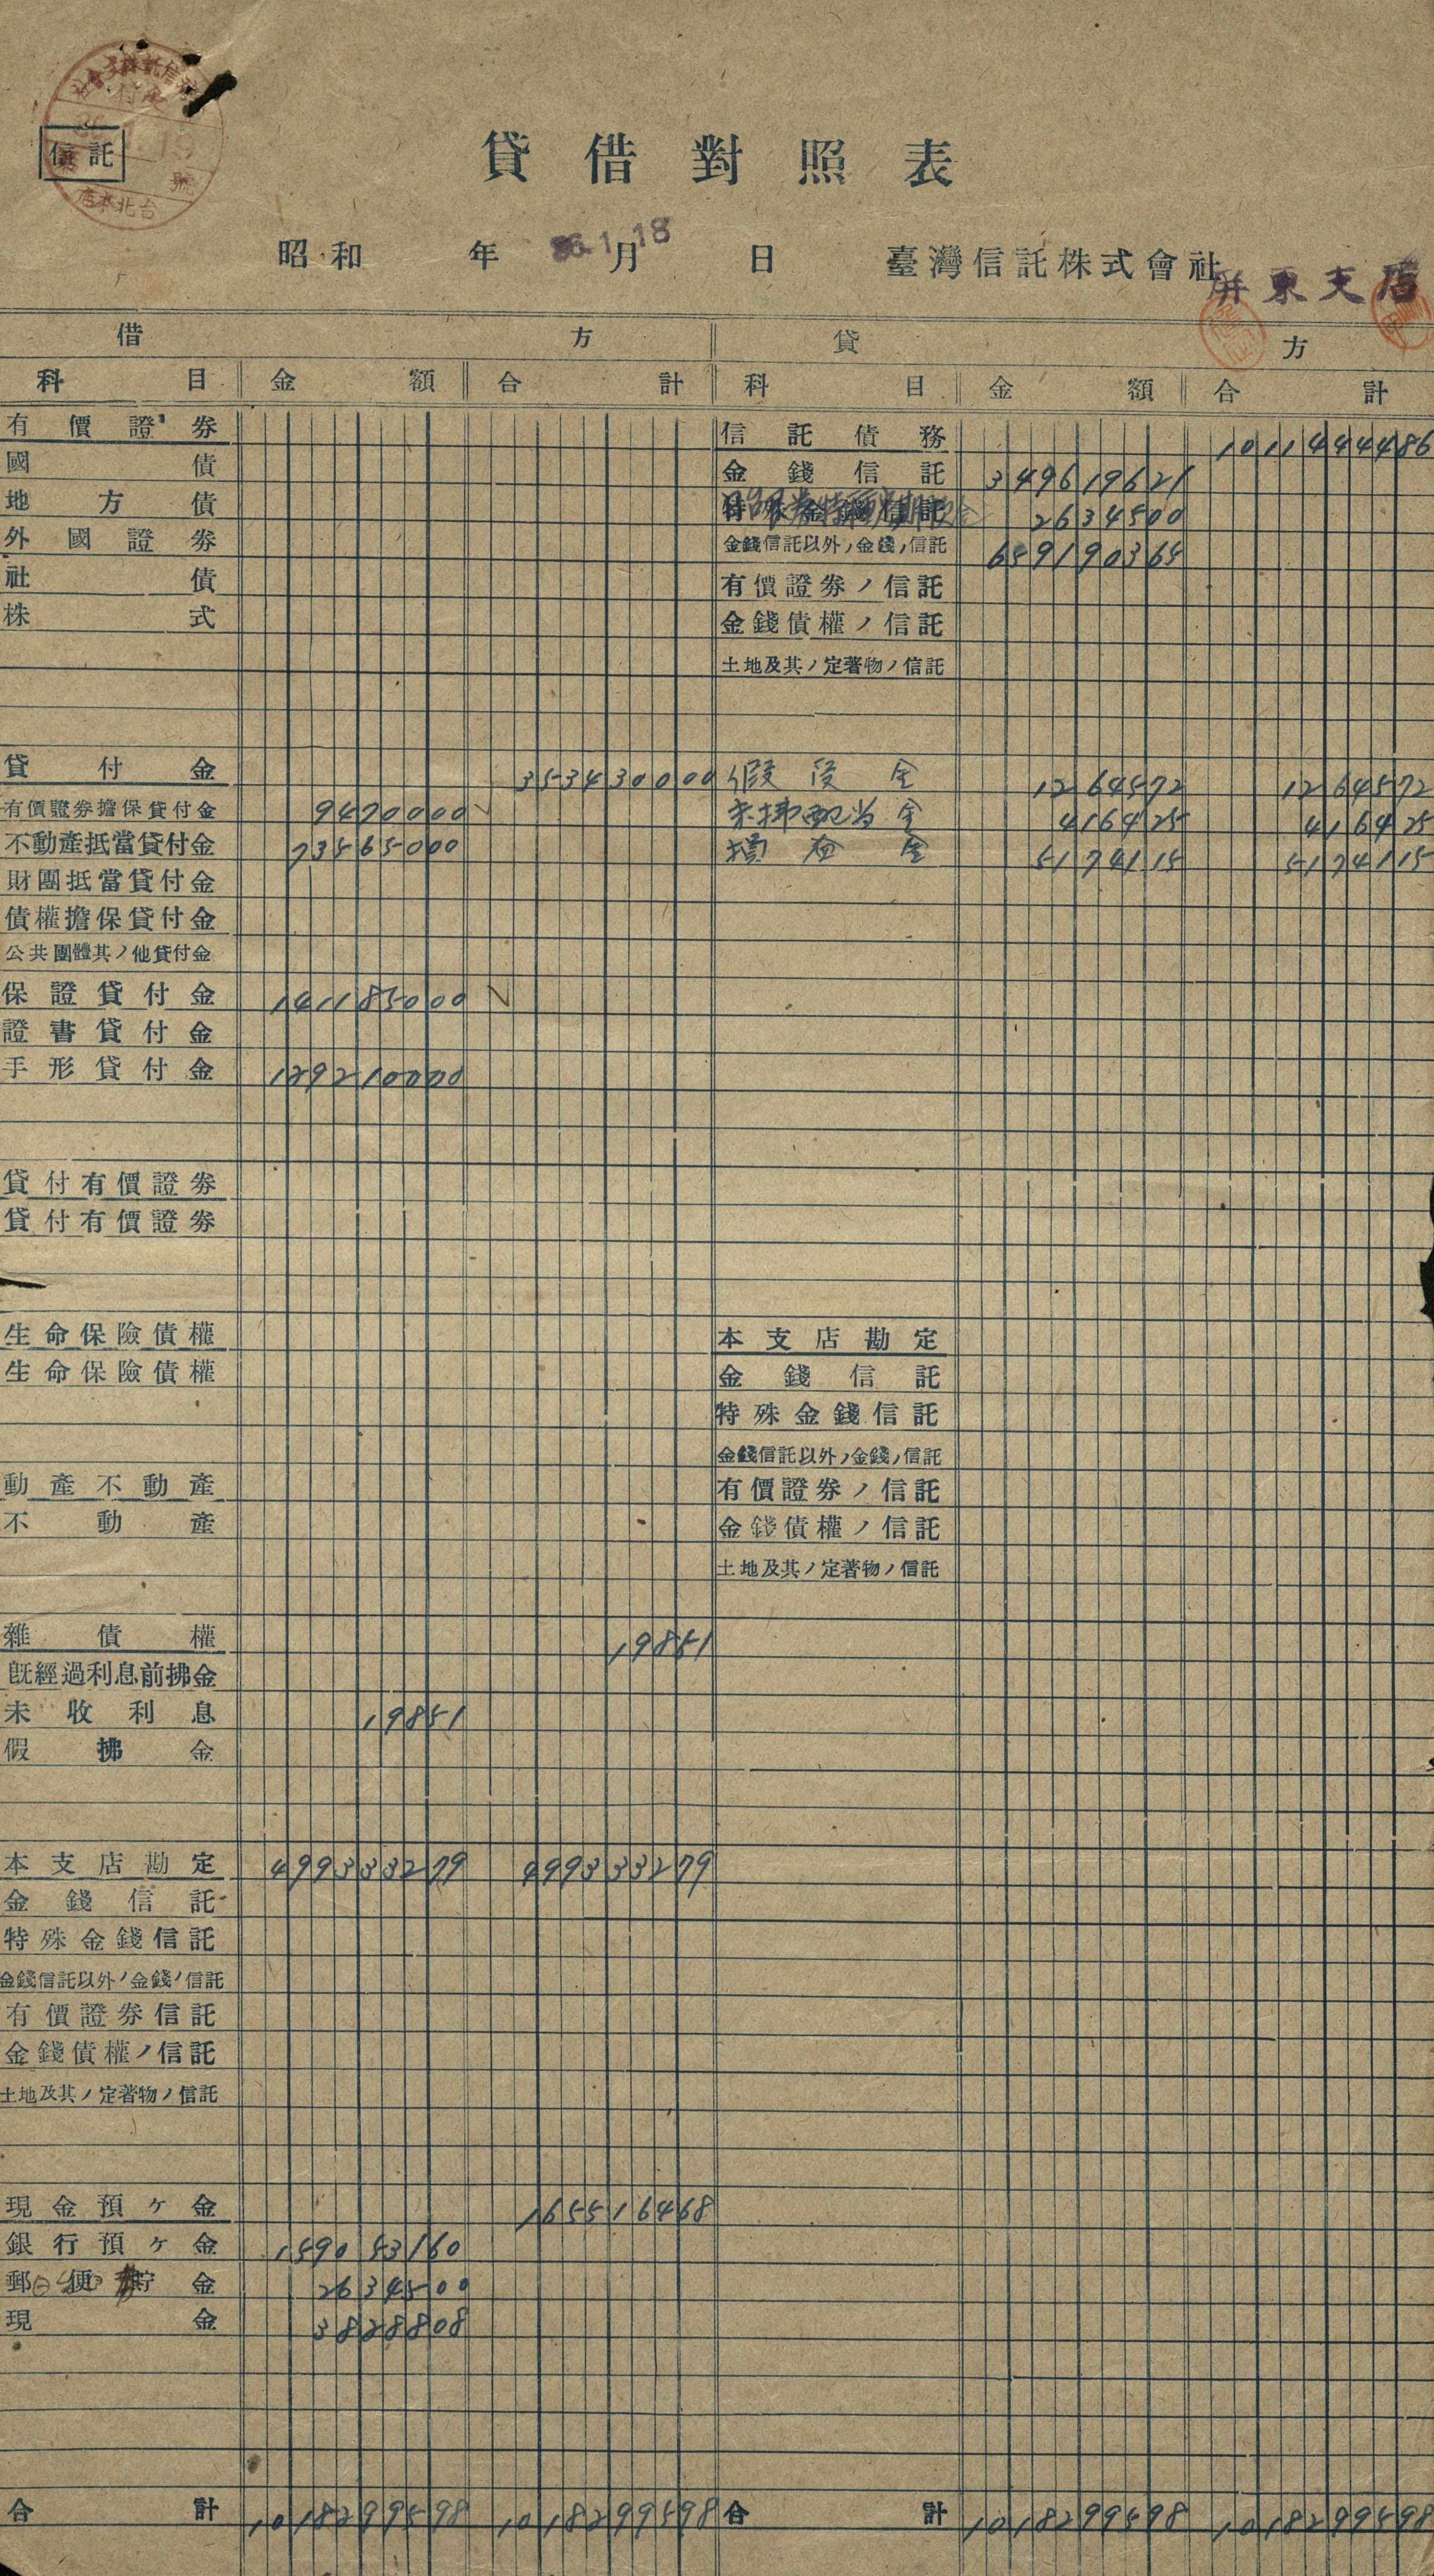 信託
台北本店
貸借對照表
昭和 年 月 日 36.1.18 臺灣信託株式會社 屏東支店
借方 貸方
科目 金額 合計 科目 金額 合計
有價證券 信託債務 1011444486
國債 金錢信託 349619621
地方債 2634500
外國證券 金錢信託以外ノ金錢ノ信託 659190365
社債 有價證券ノ信託
株式 金錢債權ノ信託
土地及其ノ定著物ノ信託
貸付金 353430000 假受金 1264572 1264572
有價證券擔保貸付金 9470000 未拂配当金 416425 416425
不動產抵當貸付金 73565000 損益金 5174115 5174115
財團抵當貸付金
債權擔保貸付金
公共團體其ノ他貸付金
保證貸付金 141185000
證書貸付金
手形貸付金 129210000
貸付有價證券
貸付有價證券
生命保險債權 本支店勘定
生命保險債權 金錢信託
特殊金錢信託
金錢信託以外ノ金錢ノ信託
動產不動產 有價證券ノ信託
不動產 金錢債權ノ信託
土地及其ノ定著物ノ信託
雜債權 19851
旣經過利息前拂金
未收利息 19851
假拂金
本支店勘定 499333279 499333279
金錢信託
特殊金錢信託
金錢信託以外ノ金錢ノ信託
有價證券信託
金錢債權ノ信託
土地及其ノ定著物ノ信託
現金預ヶ金 165516468
銀行預ヶ金 159053160
郵便貯金 2634500
現金 3828808
合計 1018299598 1018299598 合計 1018299598 1018299598